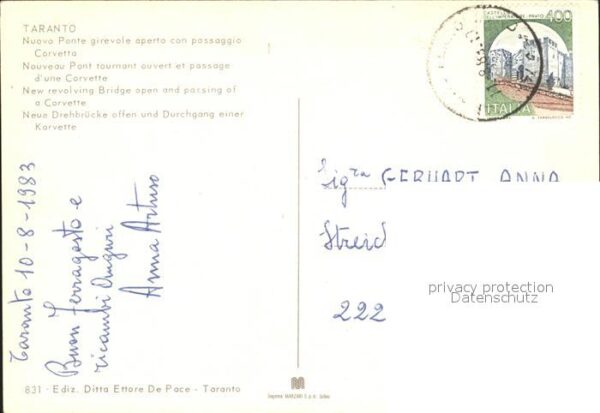 TARANTO
Nuovo Ponte girevole aperto con passaggio
Corvetta
Nouveau Pont tournant ouvert et passage
d'une Corvette
New revolving Bridge open and parsing of
a Corvette
Neue Drehbrücke offen und Durchgang einer
Korvette
Taranto 10-8-1983
Buon Ferragosto e
ricambi Auguri
Anna Artuso
831 - Ediz. Ditta Ettore De Pace - Taranto
400
ITALIA
Sig.ra GERHART ANNA
Streid
222
privacy protection
Datenschutz